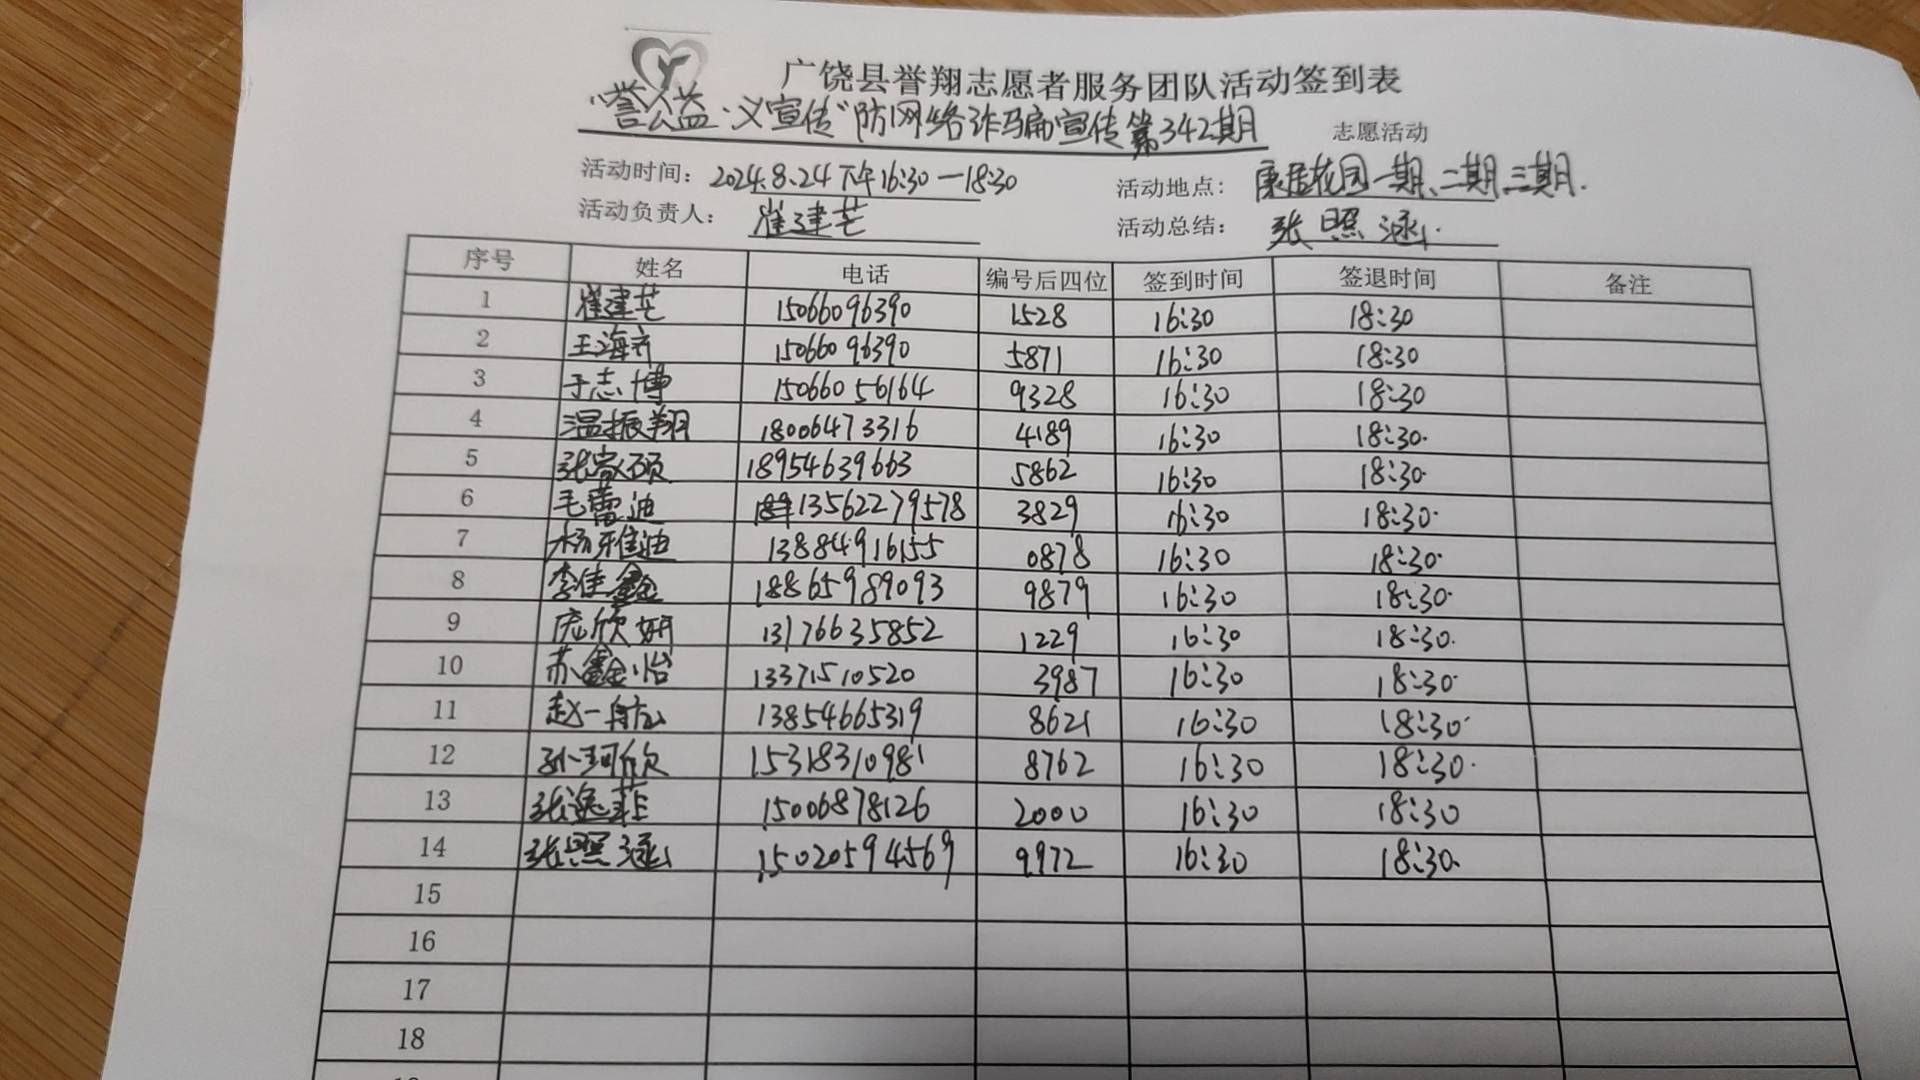 广饶县誉翔志愿者服务团队活动签到表
"誉公益·义宣传"防网络诈骗宣传第342期 志愿活动
活动时间: 2024.8.24下午16:30—18:30 活动地点: 康居花园一期、二期、三期.
活动负责人: 崔建芒 活动总结: 张照涵.
序号 姓名 电话 编号后四位 签到时间 签退时间 备注
1 崔建芒 15066096390 1528 16:30 18:30
2 王海齐 15066096390 5871 16:30 18:30
3 于志博 15066056164 9328 16:30 18:30
4 温振翔 18006473316 4189 16:30 18:30.
5 张 硕 18954639663 5862 16:30 18:30
6 毛蕾迪 13562279578 3829 16:30 18:30.
7 杨雅迪 13884916155 0878 16:30 18:30.
8 李佳鑫 18865989093 9879 16:30 18:30.
9 庞欣妍 13176635852 1229 16:30 18:30.
10 苏鑫怡 13371510520 3987 16:30 18:30.
11 赵一航 13854665319 8621 16:30 18:30.
12 孙珂欣 15318310981 8762 16:30 18:30.
13 张逸菲 15006878126 2000 16:30 18:30
14 张照涵 15020594569 9972 16:30 18:30.
15
16
17
18